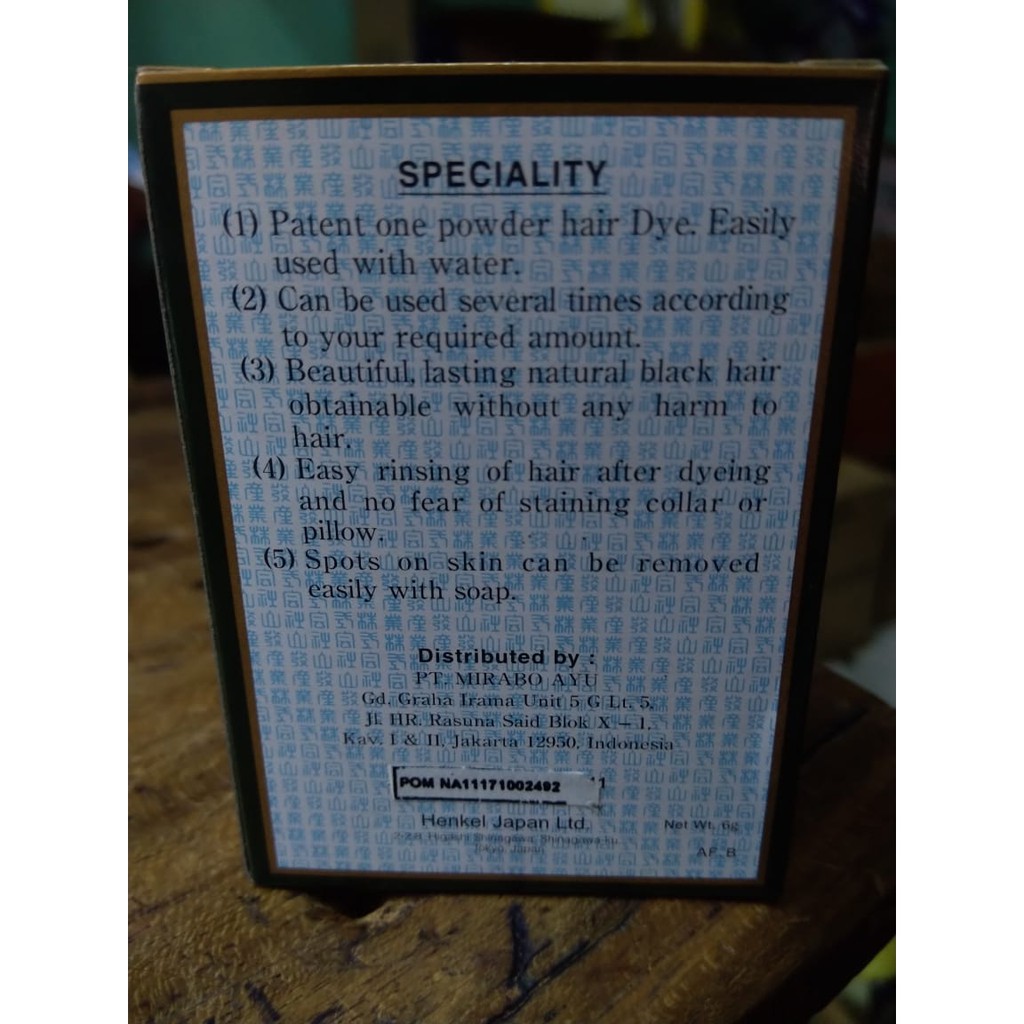 SPECIALITY
(1) Patent one powder hair Dye. Easily
used with water.
(2) Can be used several times according
to your required amount.
(3) Beautiful, lasting natural black hair
obtainable without any harm to
hair.
(4) Easy rinsing of hair after dyeing
and no fear of staining collar or
pillow.
(5) Spots on skin can be removed
easily with soap.
Distributed by :
PT. MIRABO AYU
Gd. Graha Irama Unit 5 G Lt. 5,
Jl. HR. Rasuna Said Blok X – 1,
Kav. I & II, Jakarta 12950, Indonesia
POM NA11171002492
Henkel Japan Ltd.
Net Wt. 6g
Higashi Shinagawa, Shinagawa-ku
Tokyo, Japan
AF-B